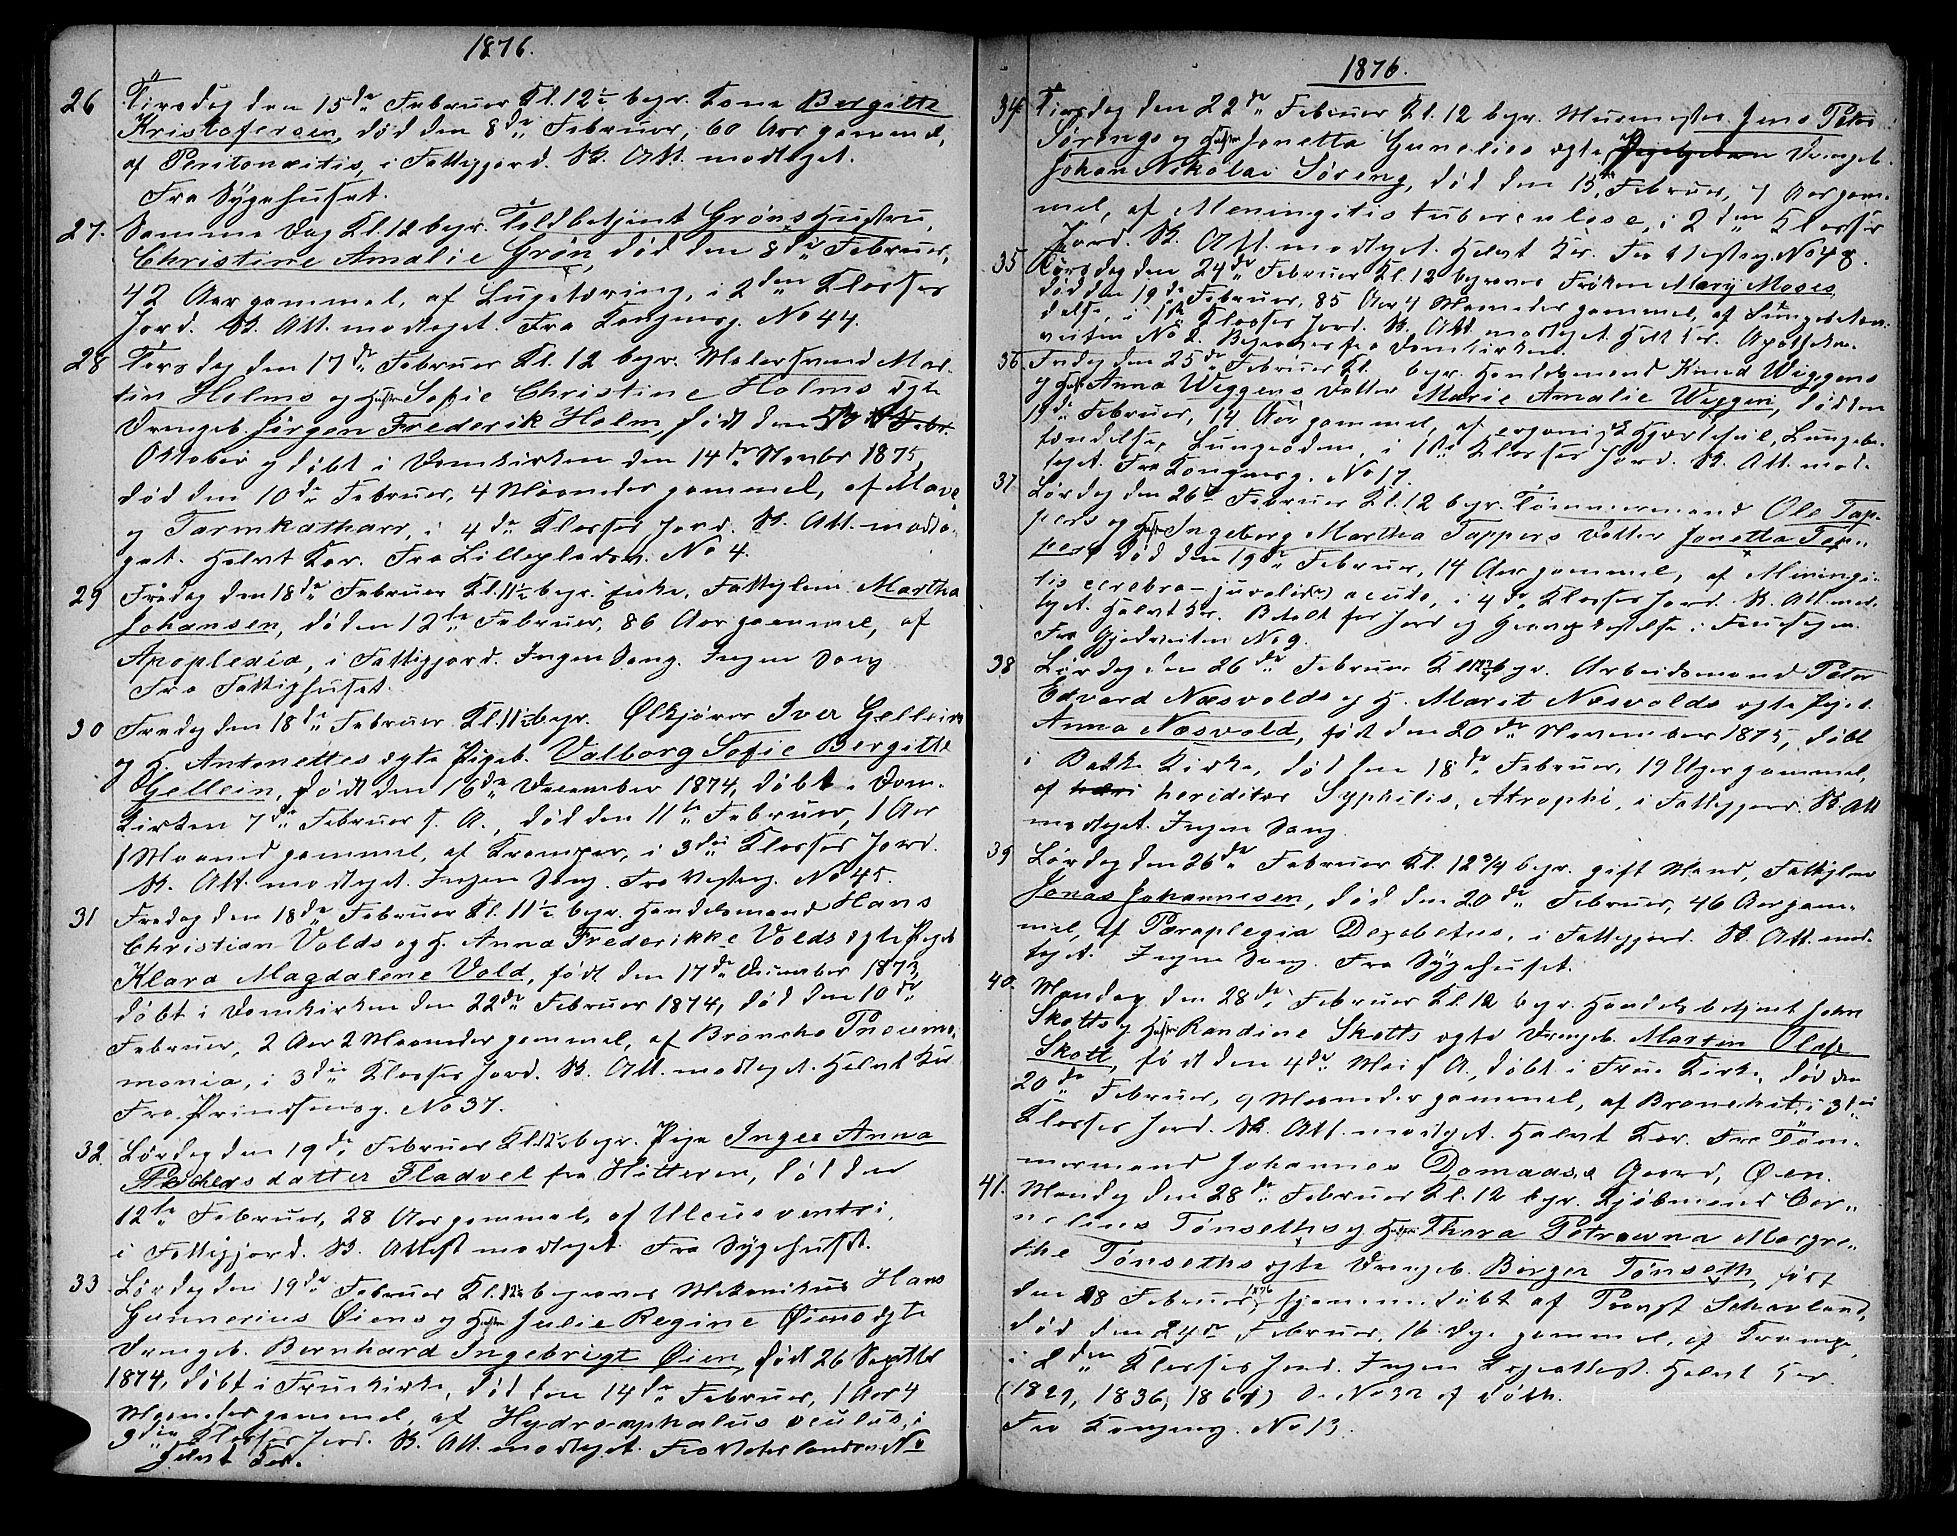 1876.
26 Tirsdag den 15de Februar Kl. 12½ begr. Kone Bergitte
Kristofersen, død den 8de Februar, 60 Aar gammel,
af Peritonæitis, i Fattigjord. Sk. Att. modtaget.
Fra Sygehuset.
27. Samme Dag Kl. 12 begr. Toldbetjent Grøns Hustru,
Christine Amalie Grön, død den 8de Februar,
42 Aar gammel, af Lugetæring, i 2den Klasses
Jord. Sk. Att. modtaget. Fra Kongensg. No 44.
28 Torsdag den 17de Februar Kl. 12 begr. Malersvend Mar-
tin Holms og Hustru Sofie Christine Holms ægte
Drengeb. Jörgen Frederik Holm, født den
Oktober og döbt i Domkirken den 14de Novbr 1875,
död den 10de Februar, 4 Maaneder gammel, af Mave
og Tarmkatharr, i 4de Klasses Jord. Sk. Att. modta-
get. Halvt Kor. Fra Lillepladsen No 4.
29 Fredag den 18de Februar Kl. 11½ begr. Enke, Fattiglem Martha
Johansen, død den 12te Februar, 86 Aar gammel, af
Apoplexia, i Fattigjord. Ingen Sang. Ingen Sang
Fra Fattighuset.
30 Fredag den 18de Februar Kl. 11½ begr. Ølkjører Iver Gellein
og H. Antonettes ægte Pigeb. Valborg Sofie Bergitte
Gellein, født den 16de December 1874, döbt i Dom-
kirken 7de Februar f. A., död den 11te Februar, 1 Aar
1 Maaned gammel, af Kramper, i 3die Klasses Jord.
Sk. Att. modtaget. Ingen Sang. Fra Vesterg. No 45.
31 Fredag den 18de Februar Kl. 11½ begr. Handelsmand Hans
Christian Volds og H. Anna Frederikke Volds ægte Pigeb.
Klara Magdalene Vold, født den 17de December 1873,
döbt i Domkirken den 22de Februar 1874, död den 10de
Februar, 2 Aar 2 Maaneder gammel, af Broncho Pneumo-
monia, i 3die Klasses Jord. Sk. Att. modtaget. Halvt Kor
Fra Prindsensg. No 37.
32. Lørdag den 19de Februar Kl. 11½ begr. Pige Inger Anna
datter Fladvel fra Hitteren, död den
12te Februar, 28 Aar gammel, af Ulcus ventri,
i Fattigjord. Sk. Attest modtaget. Fra Sygehuset.
33 Lørdag den 19de Februar Kl. 12 begraves Mekanikus Hans
Gunnerius Øiens og Hustru Julie Regine Øiens ægte
Drengeb. Bernhard Ingebrigt Øien, født 26 Septbr
1874, döbt i Fruekirke, död den 14de Februar, 1 Aar 4
Maaneder gammel, af Hydrocephalus, i
3die Klasses Jord. Sk. Att. modtaget. Fra No
Halvt Kor.
1876.
34 Tirsdag den 22de Februar Kl. 12 begr. Murmester Jens Peter
Sørengs og Hustru Jonetta Gunelies ægte Drengeb.
Johan Nikolai Söreng, död den 15de Februar, 7 Aar gam-
mel, af Meningitis tuberculose, i 2den Klasses
Jord. Sk. Att. modtaget. Halvt Kor. Fra
35 Torsdag den 24de Februar Kl. 12 begraves Frøken Mary Moses,
död den 19de Februar, 85 Aar 4 Maaneder gammel, af
i 1ste Klasses Jord. Sk. Att. modtaget. Helt Kor. Apotheker-
veiten No 2. Begraves fra Domkirken.
36. Fredag den 25de Februar Kl. begr. Handelsmand Knud Wiggens
og Hustru Anna Wiggens Datter Marie Amalie Wiggen, död den
19de Februar, 14 Aar gammel, af organisk Hjertefeil, Lungebe-
tændelse, Lungeödem, i 1ste Klasses Jord. Sk. Att. mod-
taget. Fra Kongensg. No 17.
37 Lørdag den 26de Februar Kl. 12 begr. Tømmermand Ole Tap-
pers og Hustru Ingeborg Martha Tappers Datter Jonetta Tap-
per, död den 19de Februar, 14 Aar gammel, af Miningi-
tis cerebro- acuta, i 4de Klasses Jord. Sk. Att. mod-
taget. Halvt Kor. Betalt for Jord og i
Fra Gjedveiten No 9.
38 Lørdag den 26de Februar Kl. begr. Arbeidsmand Peter
Edvard Næsvolds og H. Marit Næsvolds ægte Pigeb.
Anna Næsvold, født den 20de November 1875, döbt
i Bakke Kirke, död den 18de Februar, 19 Uger gammel,
af heriditær Syphilis, Atrophi, i Fattigjord. Sk. Att
modtaget. Ingen Sang.
39 Lørdag den 26de Februar Kl. 12¾ begr. gift Mand, Fattiglem
Jonas Johannesen, död den 20de Februar, 46 Aar gam-
mel, af Paraplegia Decubetus, i Fattigjord. Sk. Att. mod-
taget. Ingen Sang. Fra Sygehuset.
40. Mandag den 28de Februar Kl. 12 begr. Handelsbetjent John
Skotts og Hustru Randine Skotts ægte Drengeb. Marten Olaf
Skott, født den 4de Mai f. A., döbt i Frue Kirke, död den
20de Februar, 9 Maaneder gammel, af Bronchit, i 3die
Klasses Jord. Sk. Att. modtaget. Halvt Kor. Fra Töm-
mermand Johannes Domaases Gaard, Øen.
41. Mandag den 28de Februar Kl. 12 begr. Kjöbmand Cor-
nelius Tönseths og Hustru Thora Petrowna Margre-
the Tönseths ægte Drengeb. Birger Tönseth, født
den 8 Februar 1876, hjemmedöbt af Provst Schavland,
död den 24de Februar, 16 Dage gammel, af Krampe,
i 2den Klasses Jord. Ingen Lægeattest. Halvt Kor.
(1829, 1836, 1864) Se No 32 af Dödb.
Fra Kongensg. No 13.